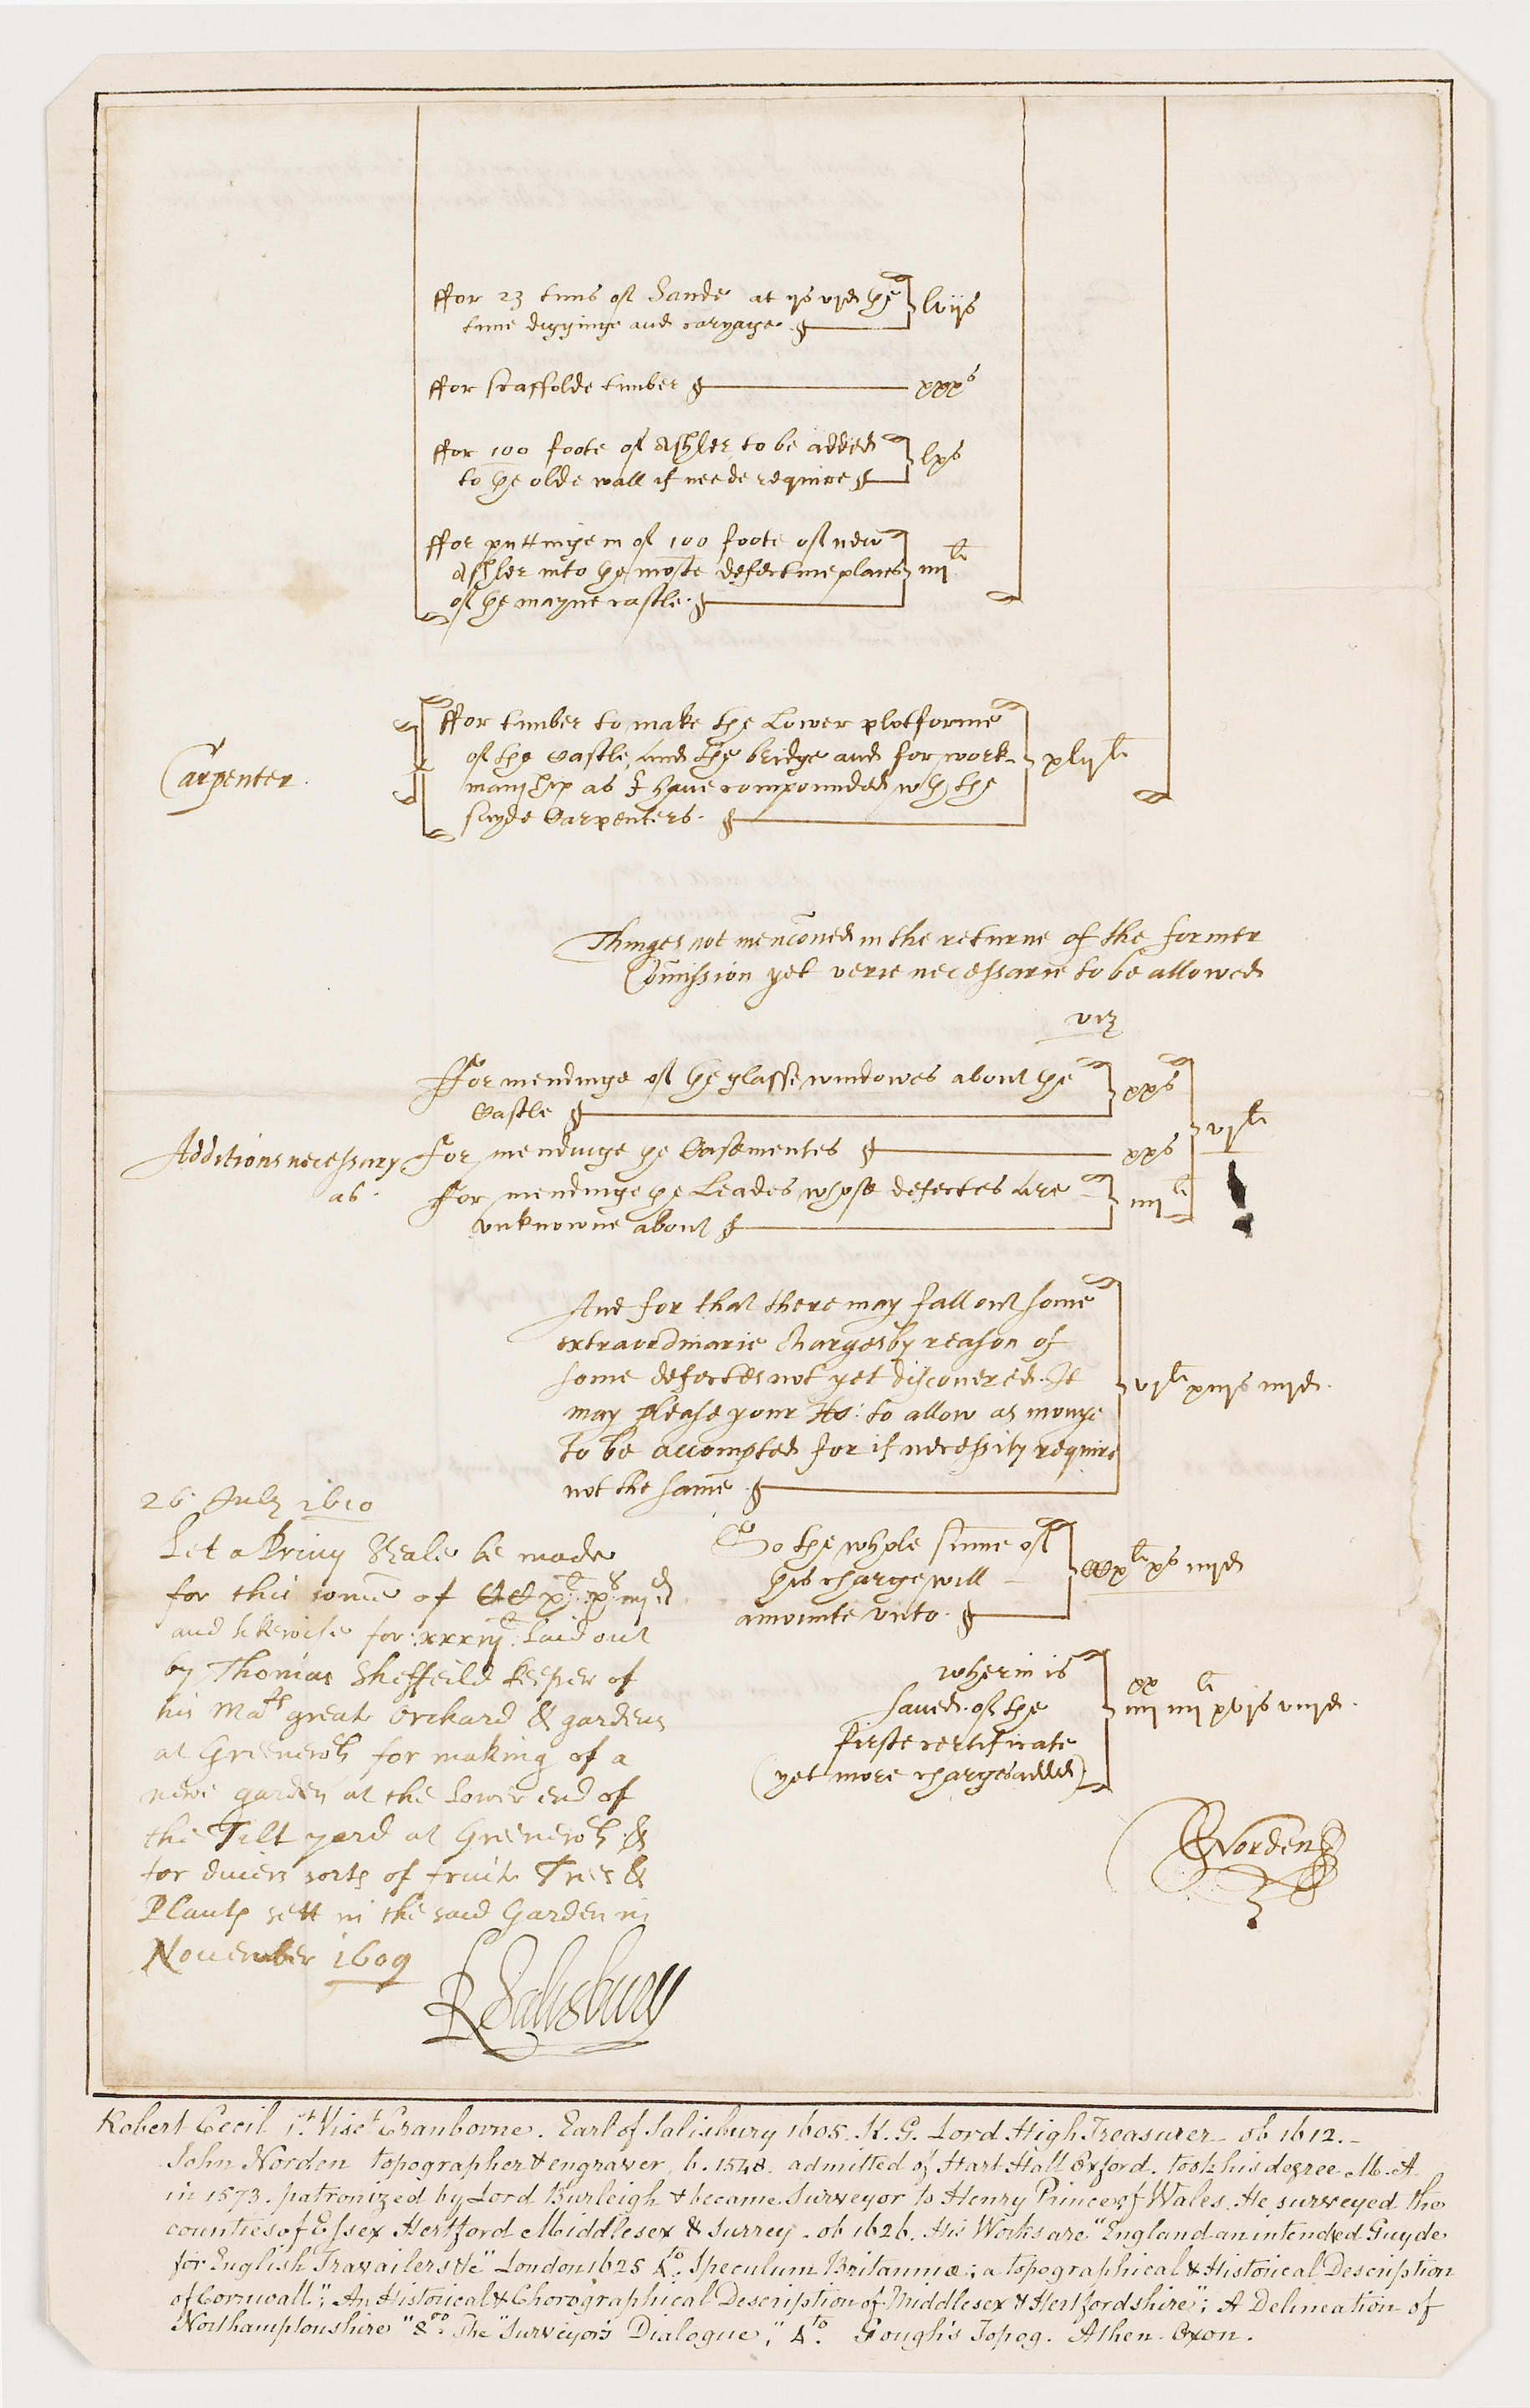 ffor 23 tuns of Sande at ijs vjd the lvijs
tunne digginge and caryage
ffor scaffolde timber xxxs
ffor 100 foote of Ashler to be added lxs
to the olde wall if neede require
ffor puttinge in of 100 foote of new
Ashler into the moste defectiue places iiijli
of the mayne castle
Carpenter.
ffor timber to make the Lower platforme
of the Castle, and the bridge and for work- xlijli
manship as I haue compounded wth the
sayde Carpenters.
Thinges not menconed in the returne of the former
Comission yet verie necessarie to be allowed
viz
Additions necessary
as.
For mendinge of the glasse windowes about the xxs
Castle
For mendinge the Casementes xxs
vjli
For mendinge the Leades whose defectes are iiijli
vnknowne about
And for that there may fall out some
extraordinarie charges by reason of
some defectes not yet discouered. It vjli xiijs iiijd.
may please your Ho: to allow as monye
to be accompted for if necessity require
not the same
So the whole summe of
this charge will CCxli xs iiijd
amounte vnto.
wherin is
saued of the iiijxx iiijli xvjs viijd.
firste certificate
(yet more charges added)
JNorden
26 July 1610
Let a Priuy Seale be made
for this some of CCxli xs iiijd
and likewise for xxxiijli laid out
by Thomas Sheffeild keeper of
his Mats great Orchard & gardens
at Grenewch for making of a
newe garden at the Lower end of
the Tilt yard at Grenewch &
for diuers sorts of fruite Trees &
Plants sett in the said Garden in
November 1609
R Salisbury
Robert Cecil 1st. Visct. Cranborne. Earl of Salisbury 1605. K.G. Lord High Treasurer ob 1612.
John Norden topographer & engraver, b. 1548. admitted of Hart Hall Oxford. took his degree M.A.
in 1573. patronized by Lord Burleigh & became Surveyor to Henry Prince of Wales. He surveyed the
counties of Essex Hertford Middlesex & Surrey. ob 1626. His Works are "England an intended Guyde
for English Travailers &c" London 1625 4to. Speculum Britanniæ; a topographical & Historical Description
of Cornwall"; An Historical & Chorographical Description of Middlesex & Hertfordshire"; A Delineation of
Northamptonshire" 8vo. The "Surveyor's Dialogue," 4to. Gough's Topog. Athen. Oxon.